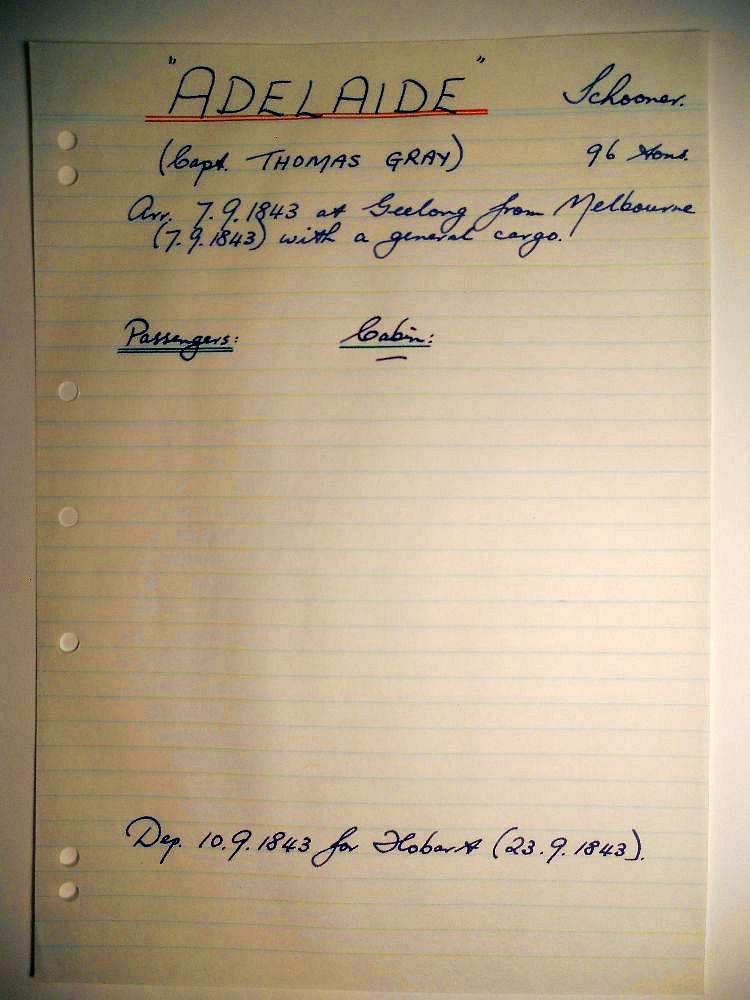 "ADELAIDE" Schooner.
(Capt. THOMAS GRAY) 96 tons.
Arr. 7.9.1843 at Geelong from Melbourne
(7.9.1843) with a general cargo.
Passengers: Cabin:
—
Dep. 10.9.1843 for Hobart (23.9.1843).